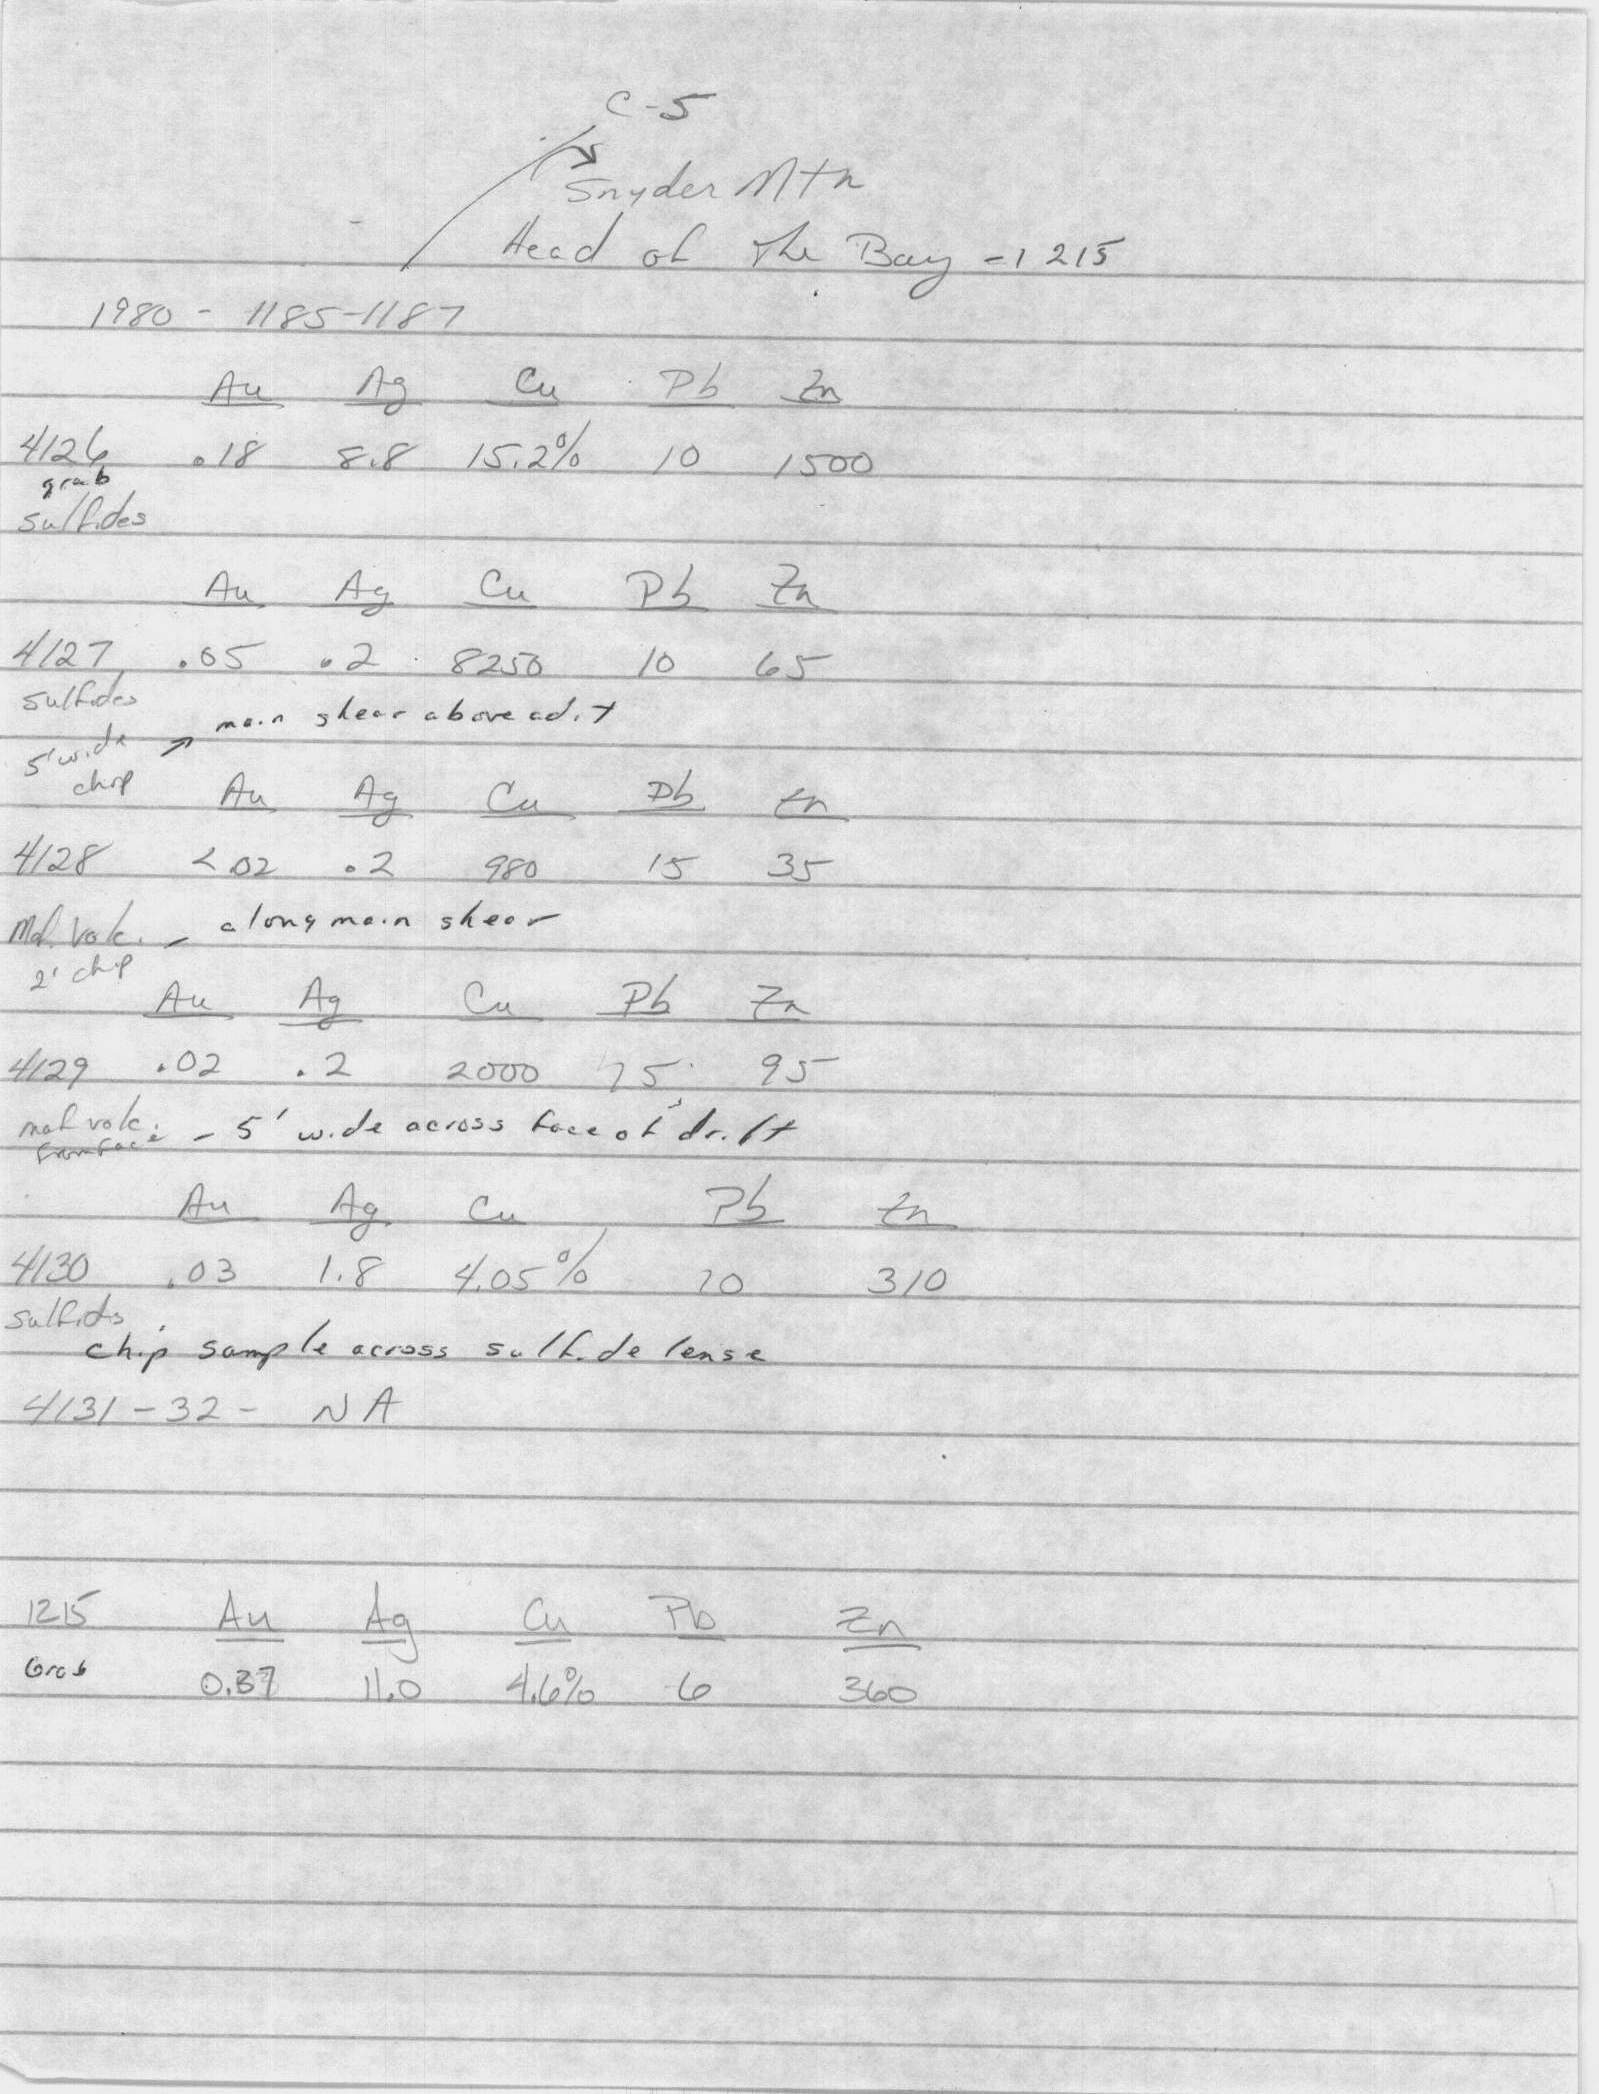 C-5
Snyder Mtn
Head of the Bay - 1215
1980 - 1185-1187
Au Ag Cu Pb Zn
4126 .18 8.8 15.2% 10 1500
grab
sulfides
Au Ag Cu Pb Zn
4127 .05 .2 8250 10 65
sulfides
main shear above adit
5' wide
chip
Au Ag Cu Pb Zn
4128 <.02 .2 980 15 35
Maf. Volc. - along main shear
2' chip
Au Ag Cu Pb Zn
4129 .02 .2 2000 95
maf volc. - 5' wide across face of drift
from face
Au Ag Cu Pb Zn
4130 .03 1.8 4.05% 10 310
sulfids
chip sample across sulfide lense
4131-32- NA
1215 Au Ag Cu Pb Zn
Grab 0.37 11.0 4.6% 6 360